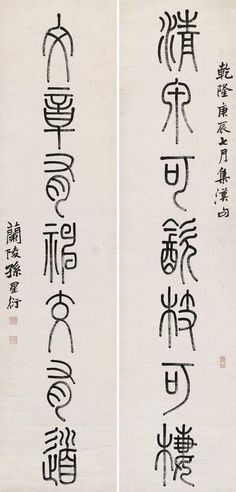 乾隆庚辰七月集漢句
清泉可飲枝可棲
文章有神交有道
蘭陵孫星衍